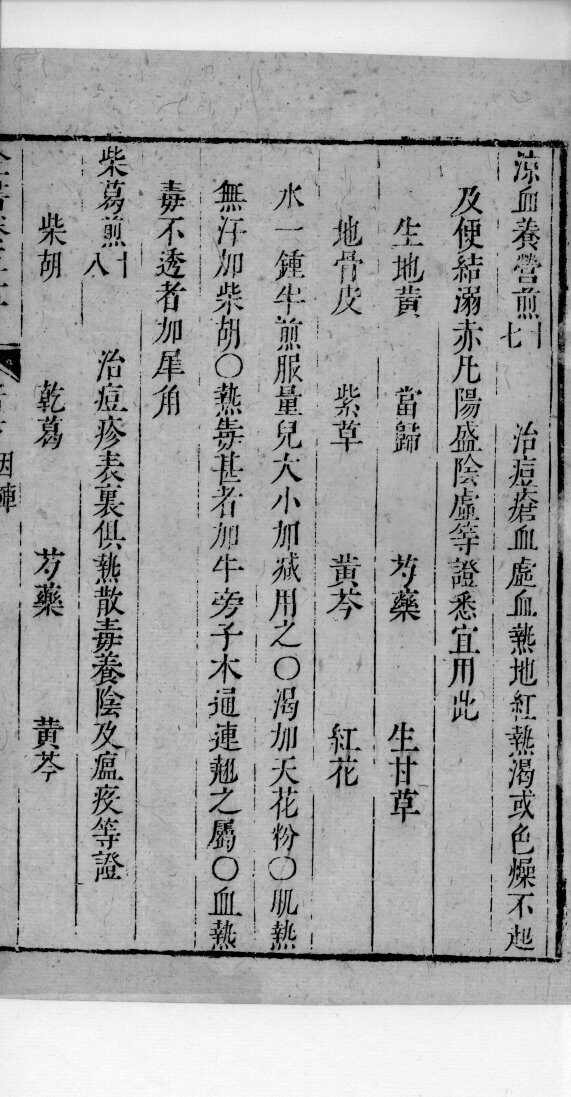 涼血養營煎十七　治痘瘡血虛血熱地紅熱渴或色燥不起
及便結溺赤凡陽盛陰虛等證悉宜用此
生地黄　當歸　芍藥　生甘草
地骨皮　紫草　黄芩　紅花
水一鍾半煎服量兒大小加減用之〇渴加天花粉〇肌熱
無汗加柴胡〇熱毒甚者加牛旁子木通連翹之屬〇血熱
毒不透者加犀角
柴葛煎十八　治痘疹表裏俱熱散毒養陰及瘟疫等證
柴胡　乾葛　芍藥　黄芩
因陣